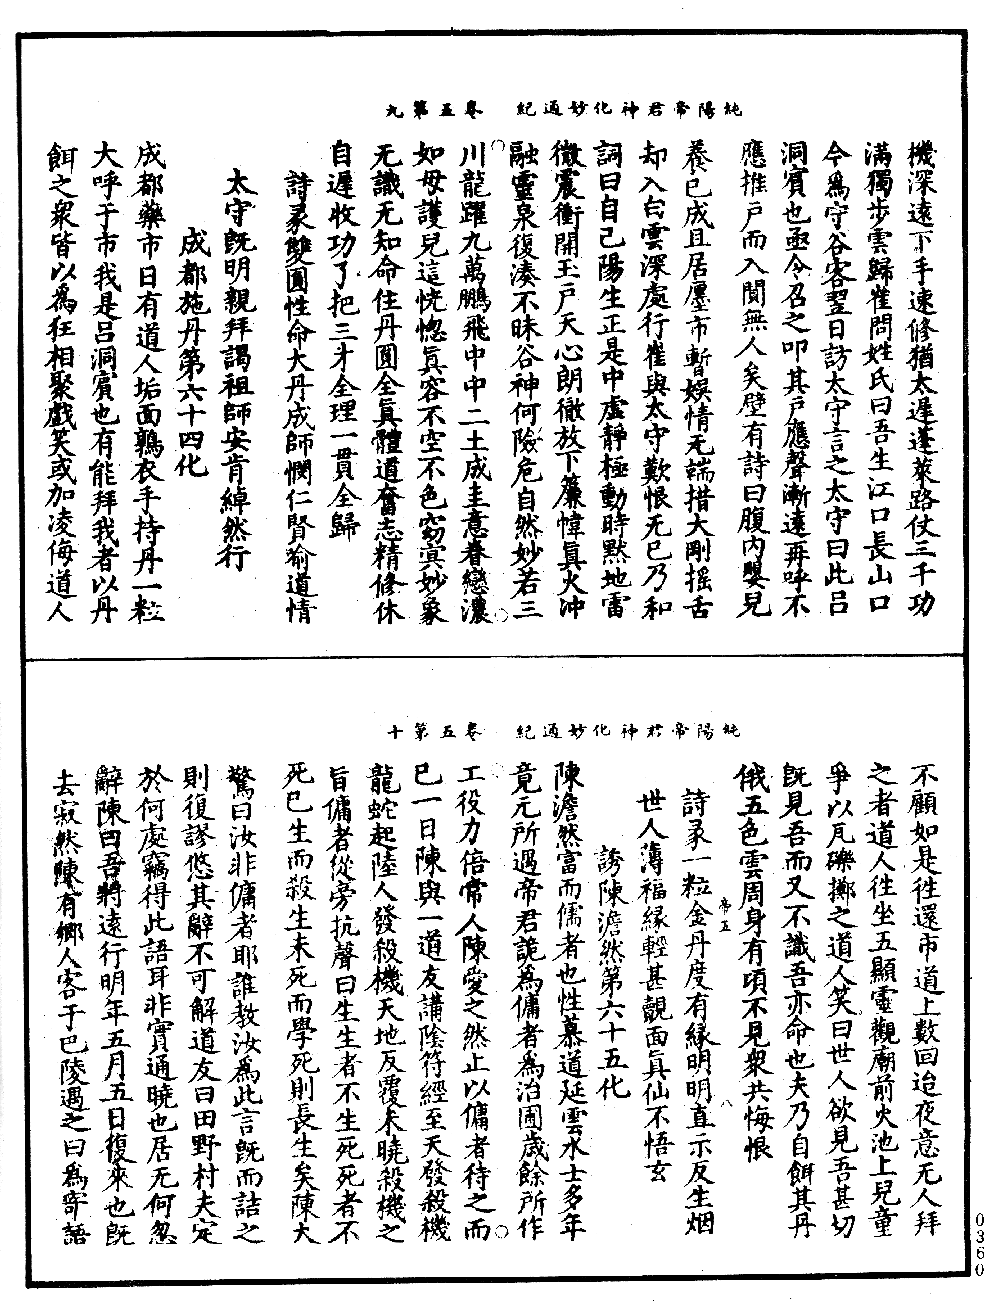 純陽帝君神化妙通紀　卷五第九
機深遠下手速修猶太遲蓬萊路仗三千功
滿獨步雲歸崔問姓氏曰吾生江口長山口
今爲守谷客翌日訪太守言之太守曰此呂
洞賓也亟令召之叩其戶應聲漸遠再呼不
應推戶而入閴無人矣壁有詩曰腹內嬰兒
養已成且居廛市暫娛情无端措大剛搖舌
却入白雲深處行崔與太守歎恨无已乃和
詞曰自己陽生正是中虛靜極動時默地雷
微震衝開玉戶天心朗徹放下簾幃真火冲
融靈泉復湊不昧谷神何險危自然妙若三
川龍躍九萬鵬飛中中二土成圭意眷戀濃
如母護兒這恍惚真容不空不色窈冥妙象
无識无知命住丹圓全真體道奮志精修休
自遲收功了把三才全理一貫全歸
詩彔雙圓性命大丹成師憫仁賢喻道情
太守既明親拜謁祖師安肯綽然行
成都施丹第六十四化
成都藥市日有道人垢面鶉衣手持丹一粒
大呼于市我是呂洞賓也有能拜我者以丹
餌之衆皆以爲狂相聚戲笑或加凌侮道人
純陽帝君神化妙通紀　卷五第十
不顧如是徃還市道上數回迨夜意无人拜
之者道人徃坐五顯靈觀廟前火池上兒童
爭以瓦礫擲之道人笑曰世人欲見吾甚切
旣見吾而又不識吾亦命也夫乃自餌其丹
俄五色雲周身有頃不見衆共悔恨
帝五
八
詩彔一粒金丹度有緣明明直示反生烟
世人薄福緣輕甚覿面真仙不悟玄
誘陳澹然第六十五化
陳澹然富而儒者也性慕道延雲水士多年
竟元所遇帝君詭爲傭者爲治圃歲餘所作
工役力倍常人陳愛之然止以傭者待之而
已一日陳與一道友講陰符經至天發殺機
龍蛇起陸人發殺機天地反覆未曉殺機之
旨傭者從旁抗聲曰生生者不生死死者不
死已生而殺生未死而學死則長生矣陳大
驚曰汝非傭者耶誰教汝爲此言旣而詰之
則復謬悠其辭不可解道友曰田野村夫定
於何處竊得此語耳非實通曉也居无何忽
辭陳曰吾將遠行明年五月五日復來也旣
去寂然陳有鄉人客于巴陵遇之曰爲寄語
0360